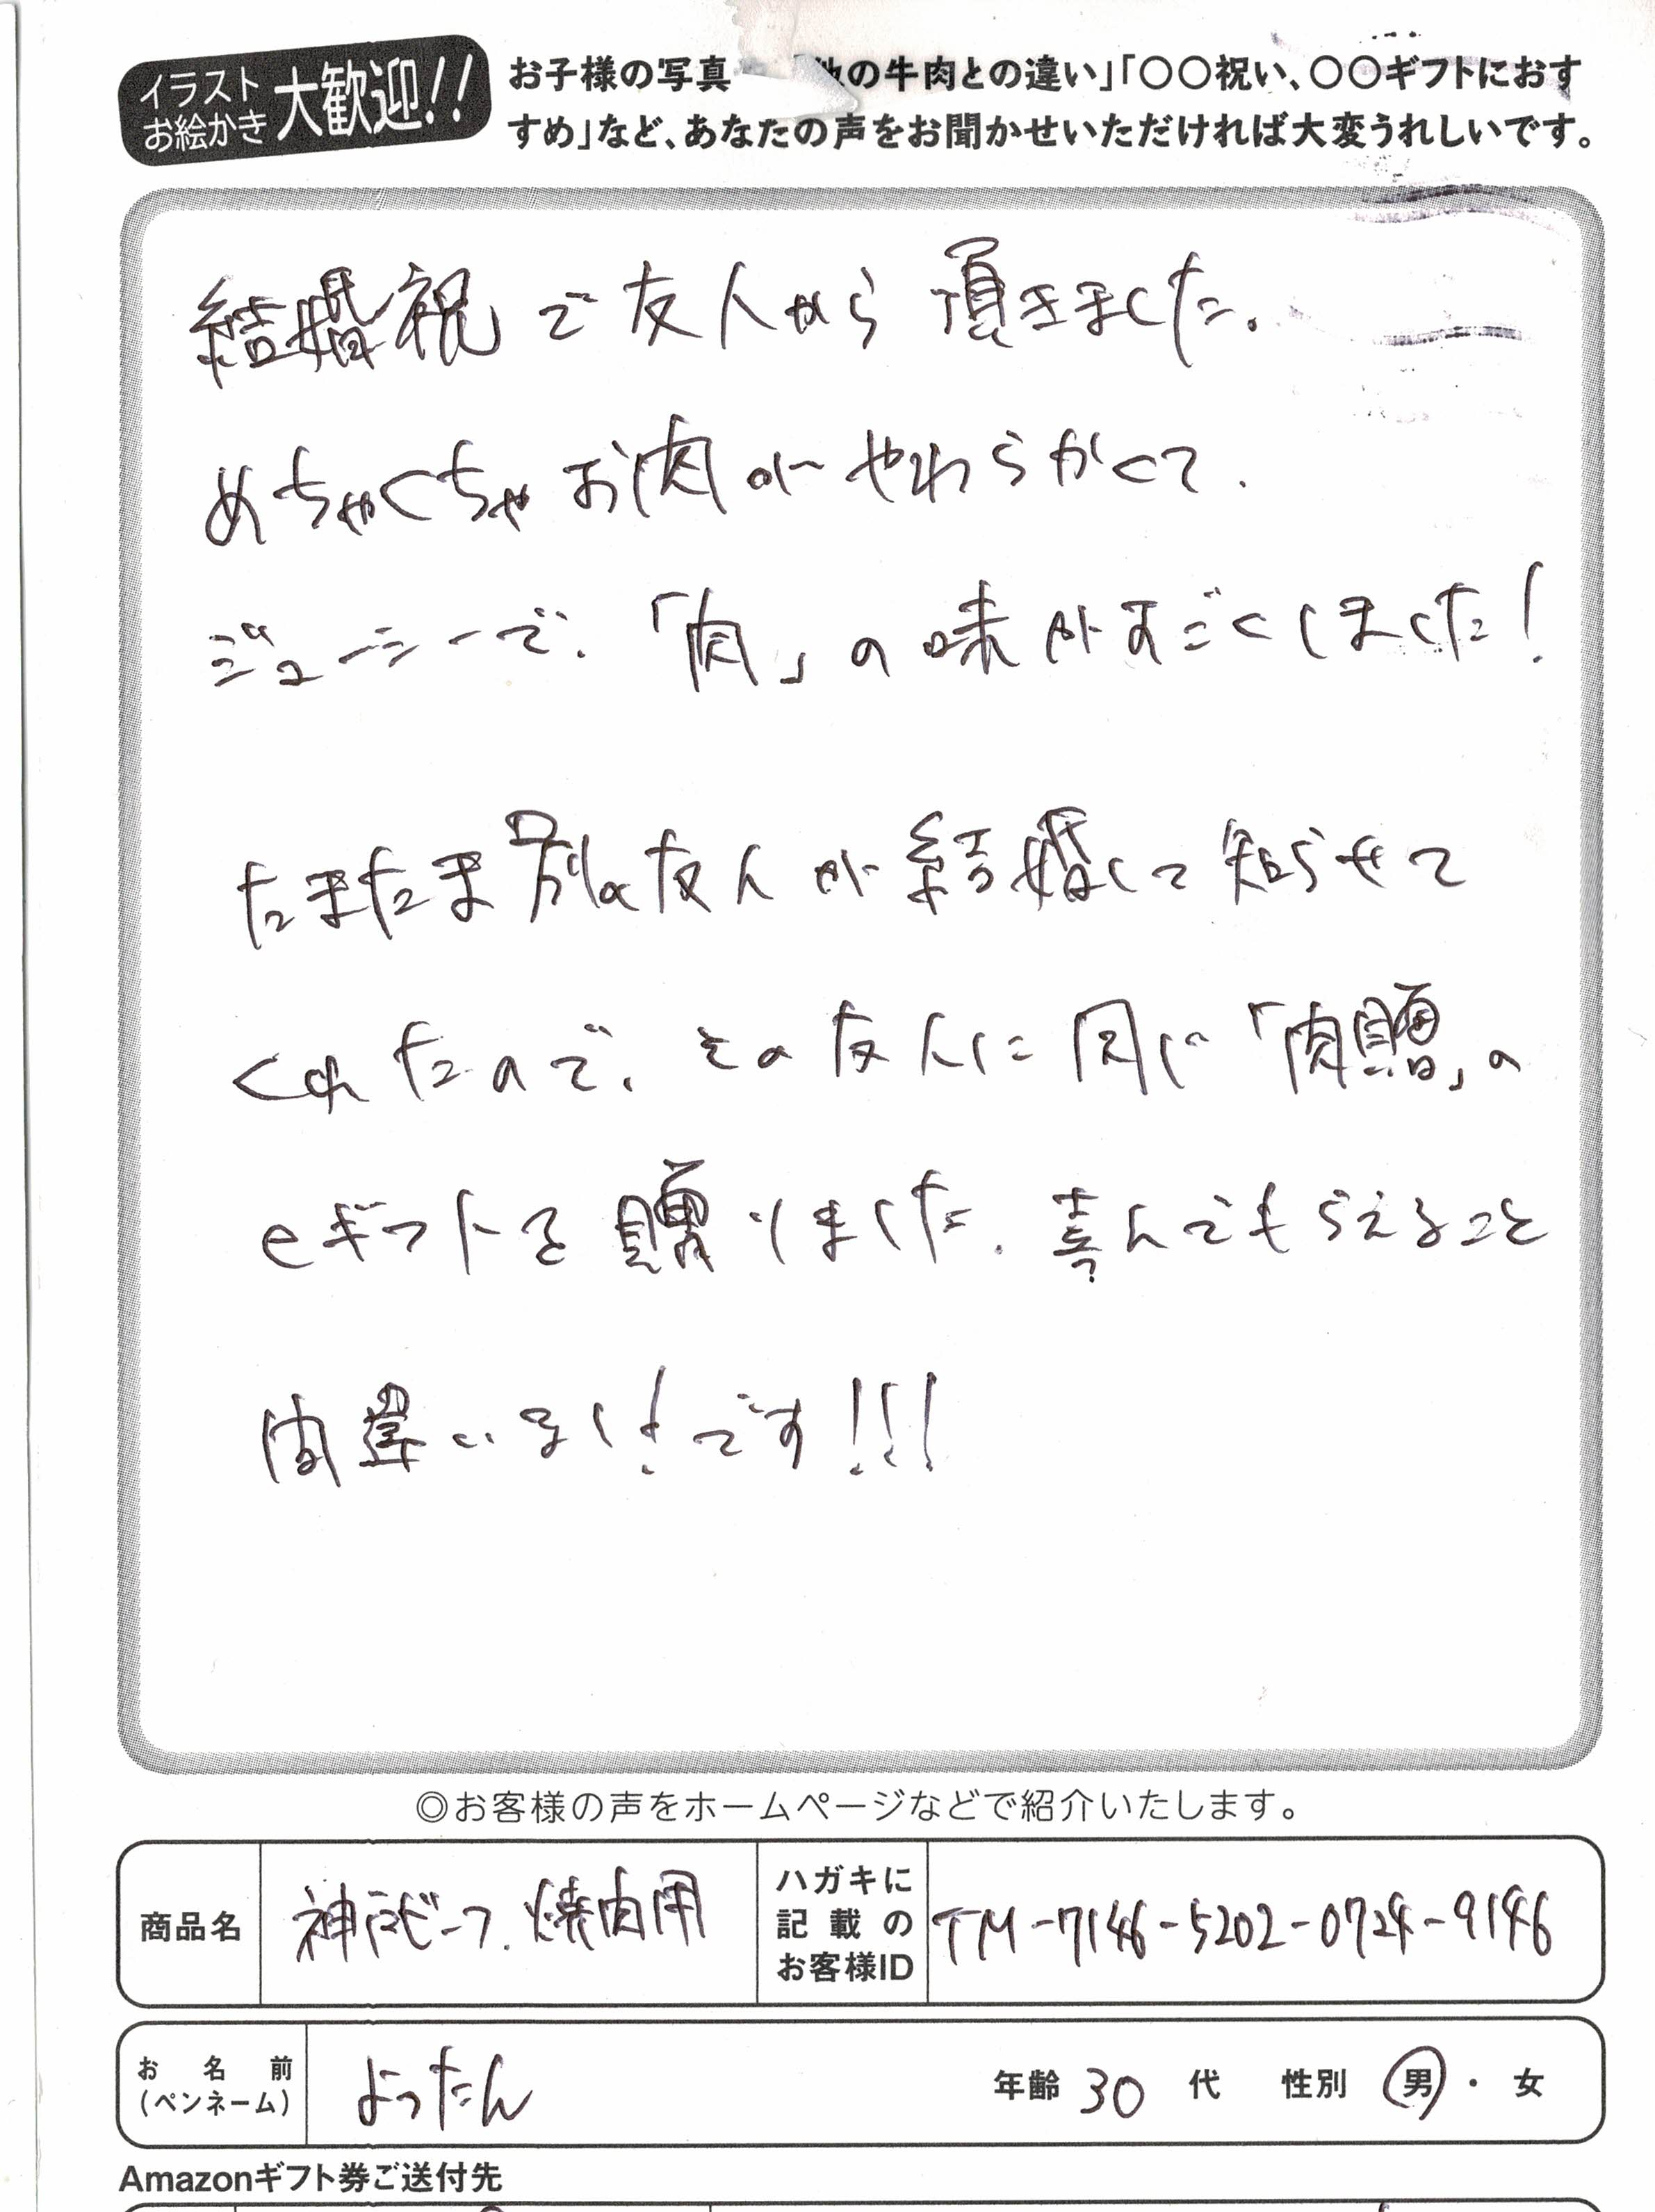 イラスト
お絵かき
大歓迎!!
お子様の写真 の牛肉との違い」「〇〇祝い、〇〇ギフトにおす
すめ」など、あなたの声をお聞かせいただければ大変うれしいです。
結婚祝で友人から頂きました。
めちゃくちゃお肉がやわらかくて、
ジューシーで、「肉」の味がすごくしました!
たまたま別の友人が結婚して知らせて
くれたので、その友人に同じ「肉贈」の
eギフトを贈りました。喜んでもらえること
間違いまし!です!!!
◎お客様の声をホームページなどで紹介いたします。
商品名
神戸ビーフ、焼肉用
ハガキに
記載の
お客様ID
TM-7146-5202-0724-9146
お名前
(ペンネーム)
よったん
年齢 30 代 性別 男・女
Amazonギフト券ご送付先